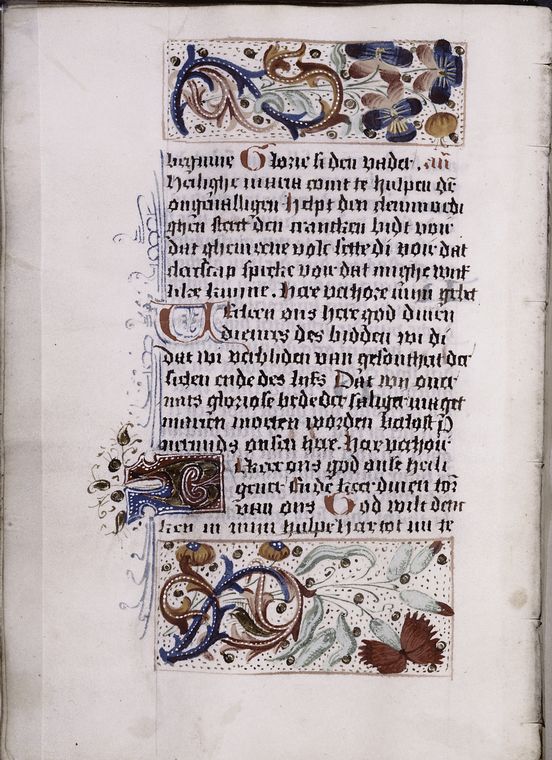 beghinne Glorie si den vader. añ
Heilighe maria comt te hulpen dē
ongevalligen helpt den cleinmoedi
ghen sterct den crancken bidt voir
dat ghemeene volc sette di voir dat
clerscap spreke voir dat mighe wijf
like kunne. Here verhore mijn gebet
Verleen ons here god dinen
dieners des bidden wi di
dat wi verbliden van gesontheit der
sielen ende des lijfs Dat wy over
mits gloriose bede der saliger maget
marien moeten worden verlost
ons here. Here verhoir
ons god onse heili
gever Ende keer dinen torn
van ons God wilt denc
ken in mijn hulpe Here tot mi te